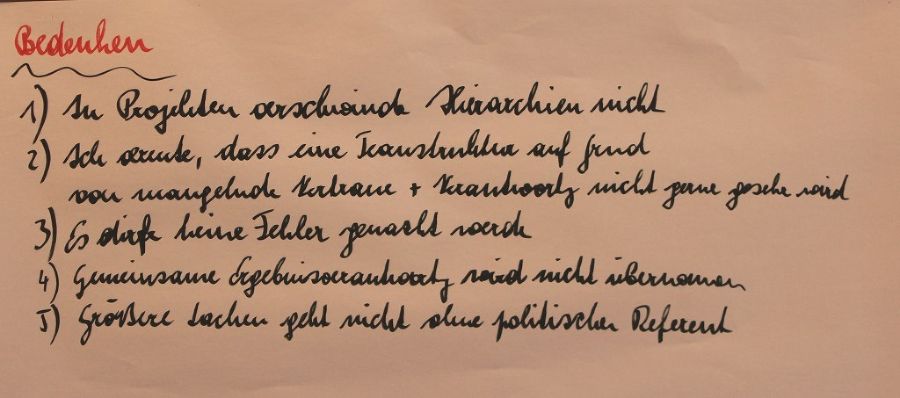 Bedenken
1) In Projekten verschwinde Hierarchien nicht
2) Ich vermute, dass eine Teamstruktur auf grund
von mangelnde Vertraue + Verantwortg nicht gerne gesehe wird
3) Es dürfe keine Fehler gemacht werde
4) Gemeinsame Ergebnisverantwortg wird nicht übernomen
5) Größere Sachen geht nicht ohne politischen Referent